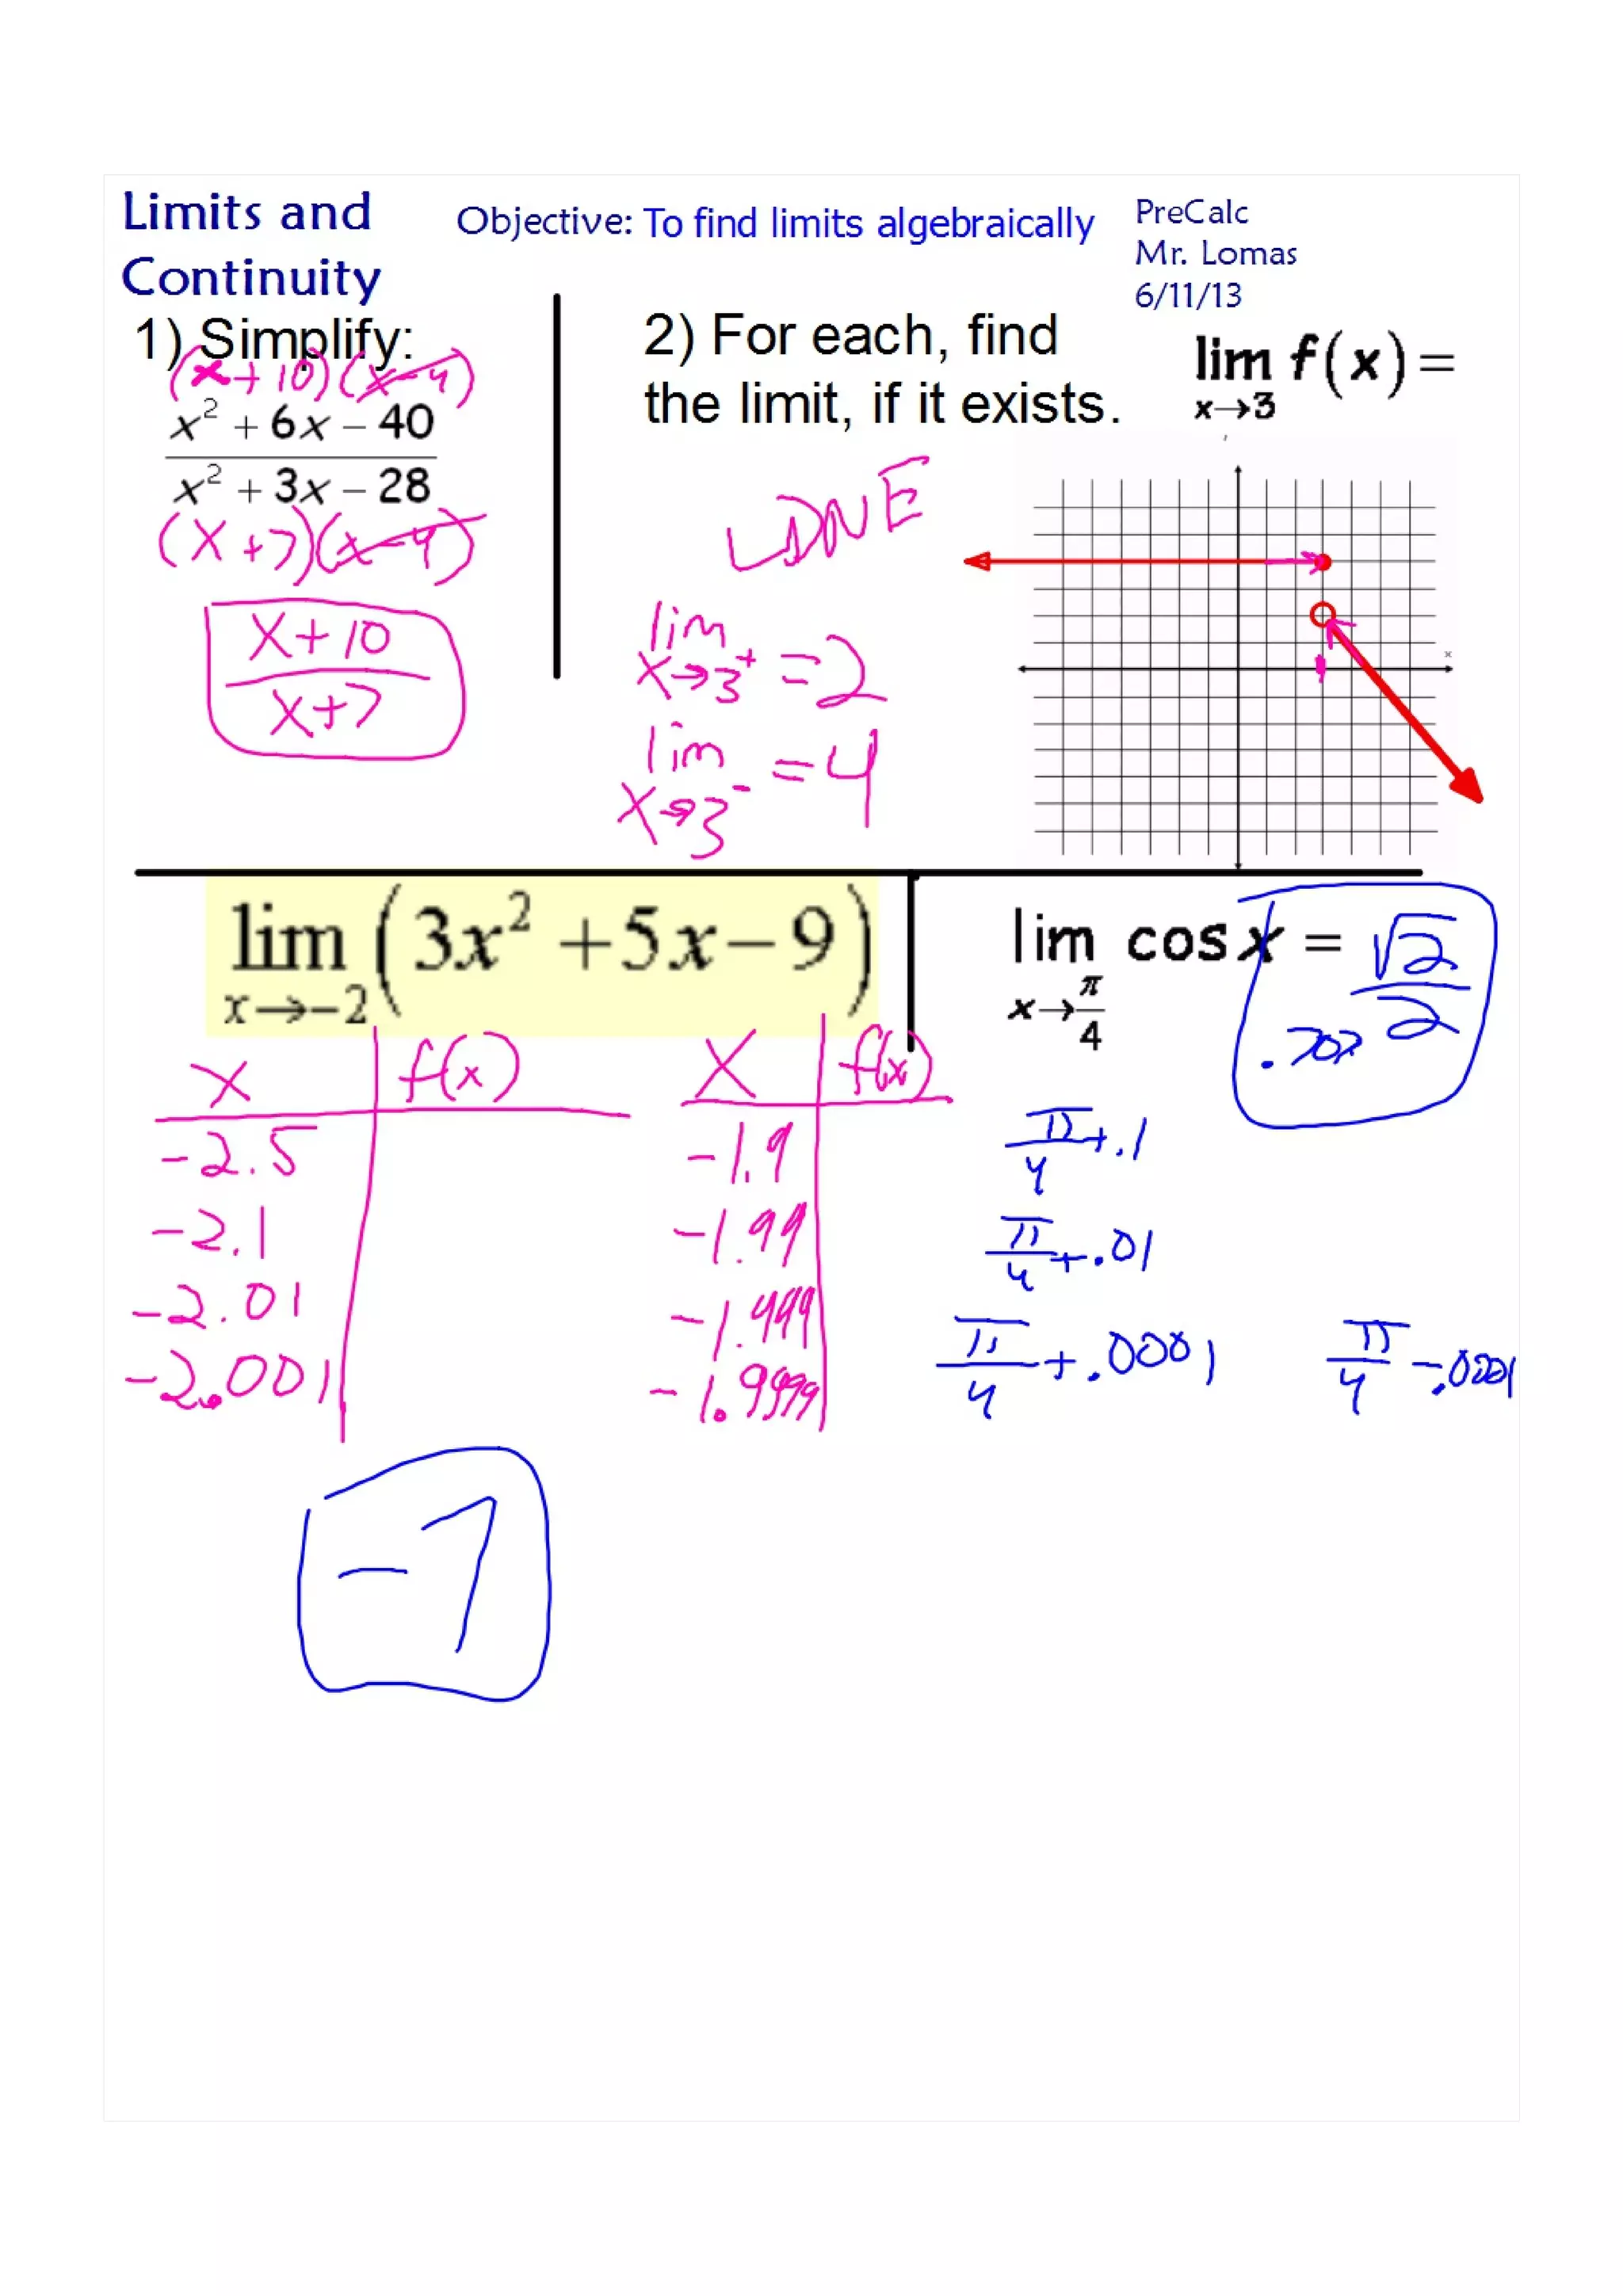 Limits and
Continuity
Objective: To find limits algebraically
PreCalc
Mr. Lomas
6/11/13
1) Simplify:
(x+10)(x-4)
x² + 6x - 40
x² + 3x - 28
(x+7)(x-4)
x+10
x+7
2) For each, find
the limit, if it exists.
lim f(x) =
x→3
DNE
lim
x→3⁺ = 2
lim
x→3⁻ = 4
x
lim (3x² + 5x - 9)
x→-2
x f(x)
-2.5
-2.1
-2.01
-2.001
x f(x)
-1.9
-1.99
-1.999
-1.9999
-7
lim cos x = √2/2
x→π/4
.707
π/4 + .1
π/4 + .01
π/4 + .0001
π/4 - .0001